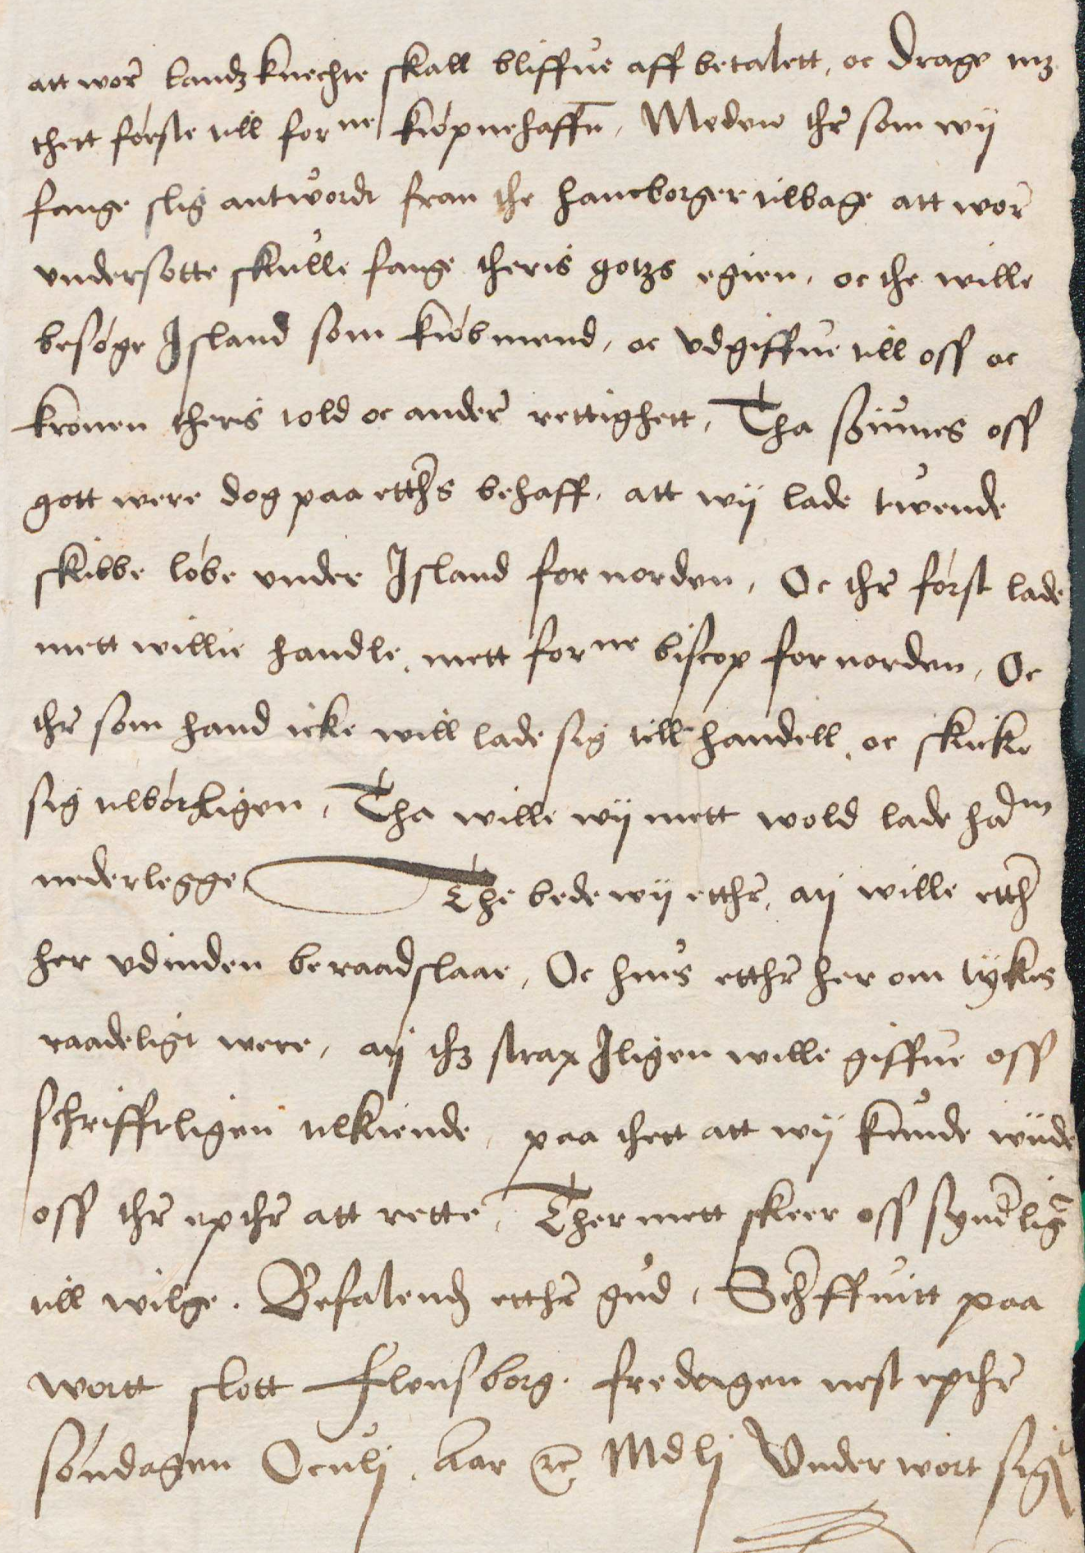 att wor landzknechte skall bliffue aff betalett, oc drage mz
thett første till forne kiøpnehaffn, Meden ther som wij
fange slig antwordt fran the hamborger tilbage att wor
vndersotte skulle fange theris gotzs egien, oc the wille
besøge Island som kiøbmend, oc vdgiffue till oss oc
kronen theris told oc ander rettighett, Tha siunes oss
gott were dog paa etthers behaff, att wij lade twende
skibbe løbe vnder Island for norden, Oc ther først lade
mett willie handle mett forne biscop for norden, Oc
ther som hand icke will lade sig till handell oc skicke
sig tilbørligen, Tha wille wij mett wold lade hanom
nederlegge The bede wij etther, atj wille etther
her vdinden beraadslaae, Oc hues etther her om tyckes
raadeligt were, atj thz strax Iligen wille giffue oss
schrifftligen tilkiende, paa thett att wij kunde wiide
oss ther epther att rette, Ther mett skeer oss synderlige
till wilge. Befalendes etther gud, Schreffuitt paa
wortt slott Flensborg. fredagen nest epther
søndagen Oculj, Aar etc Mdlj Vnder wort sig